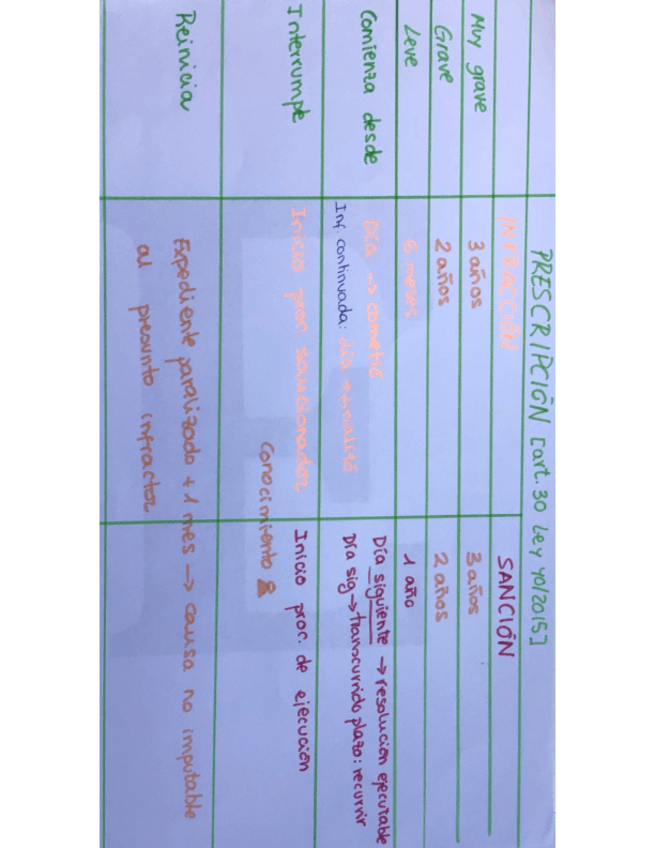 PRESCRIPCIÓN [art. 30 Ley 40/2015]
INFRACCIÓN SANCIÓN
Muy grave 3 años 3 años
Grave 2 años 2 años
Leve 6 meses 1 año
Comienza desde Día → cometió Día siguiente → resolución ejecutable
Inf. continuada: día → finalizó Día sig → transcurrido plazo: recurrir
Interrumpe Inicio proc. sancionador Inicio proc. de ejecución
Conocimiento
Reinicia Expediente paralizado + 1 mes → causa no imputable
al presunto infractor